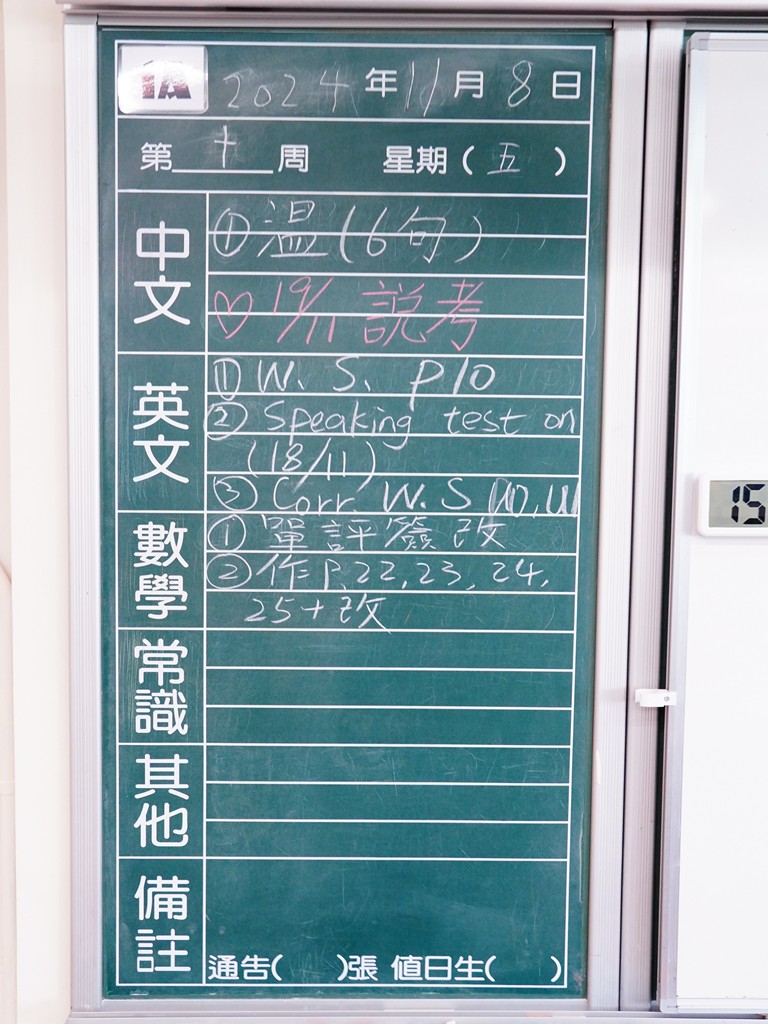 1A
2024年11月8日
第十周 星期(五)
中文
①溫(6句)
♡19/11 說考
英文
① W. S. P10
② Speaking test on
(18/11)
③ Corr. W.S
數學
① 單評簽改
② 作P.22, 23, 24,
25+改
常識
其他
備註
通告( )張 值日生( )
15